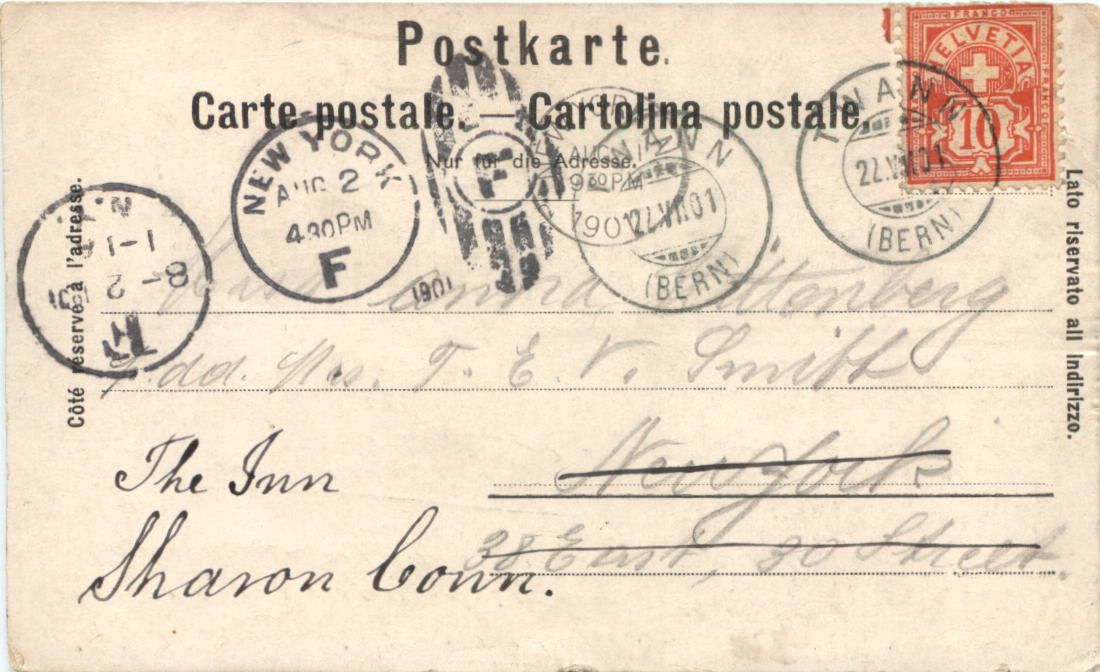 Postkarte.
Carte postale. — Cartolina postale.
Nur für die Adresse.
Côté réservé à l'adresse.
Lato riservato all indirizzo.
FRANCO
HELVETIA
10
TWANN
22.VII.01
(BERN)
TWANN
22.VII.01
(BERN)
NEW YORK
AUG 2
4 30PM
F
1901
F
NEW YORK
AUG
9 30 PM
1901
N.Y.
1-1
8-2
Wittenberg
add. Mrs. T. E. V. Smith
New York
38 East, 30 Street.
The Inn
Sharon Conn.